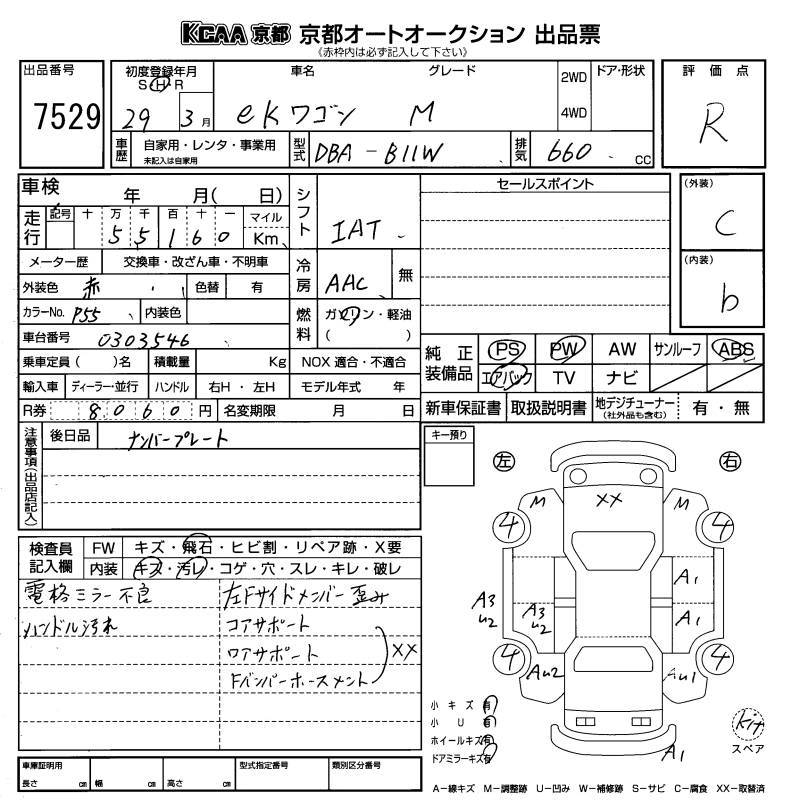 KCAA 京都 京都オートオークション 出品票
(赤枠内は必ず記入して下さい)
出品番号 7529
初度登録年月 S H R 29 3月
車名 グレード eKワゴン M
2WD 4WD
ドア・形状
評価点 R
車歴 自家用・レンタ・事業用 未記入は自家用
型式 DBA-B11W
排気 660 cc
車検 年 月( 日)
シフト IAT
セールスポイント
(外装) C
(内装) b
走行 記号 十 万 千 百 十 一 マイル Km
5 5 1 6 0
メーター歴 交換車・改ざん車・不明車
冷房 AAC 無
外装色 赤 色替 有
カラーNo. P55 内装色
燃料 ガソリン・軽油 ( )
車台番号 0303546
乗車定員( )名 積載量 Kg NOX 適合・不適合
輸入車 ディーラー・並行 ハンドル 右H・左H モデル年式 年
R券 8060円 名変期限 月 日
純正装備品 PS PW AW サンルーフ ABS
エアバック TV ナビ
新車保証書 取扱説明書 地デジチューナー (社外品も含む) 有・無
注意事項(出品店記入)
後日品 ナンバープレート
キー預り
左 右
検査員記入欄 FW キズ・飛石・ヒビ割・リペア跡・X要
内装 キズ・汚レ・コゲ・穴・スレ・キレ・破レ
電格ミラー不良
ハンドル汚れ
左Fサイドメンバー歪み
コアサポート
ロアサポート XX
Fバンパーホースメント
M XX M
4 4
A1
A3 U2 A3 U2 A1
4 4
AU2 AU1
A1
小キズ 有
小U 有
ホイールキズ 有
ドアミラーキズ 有
kit
スペア
車庫証明用 長さ cm 幅 cm 高さ cm
型式指定番号 類別区分番号
A-線キズ M-調整跡 U-凹み W-補修跡 S-サビ C-腐食 XX-取替済